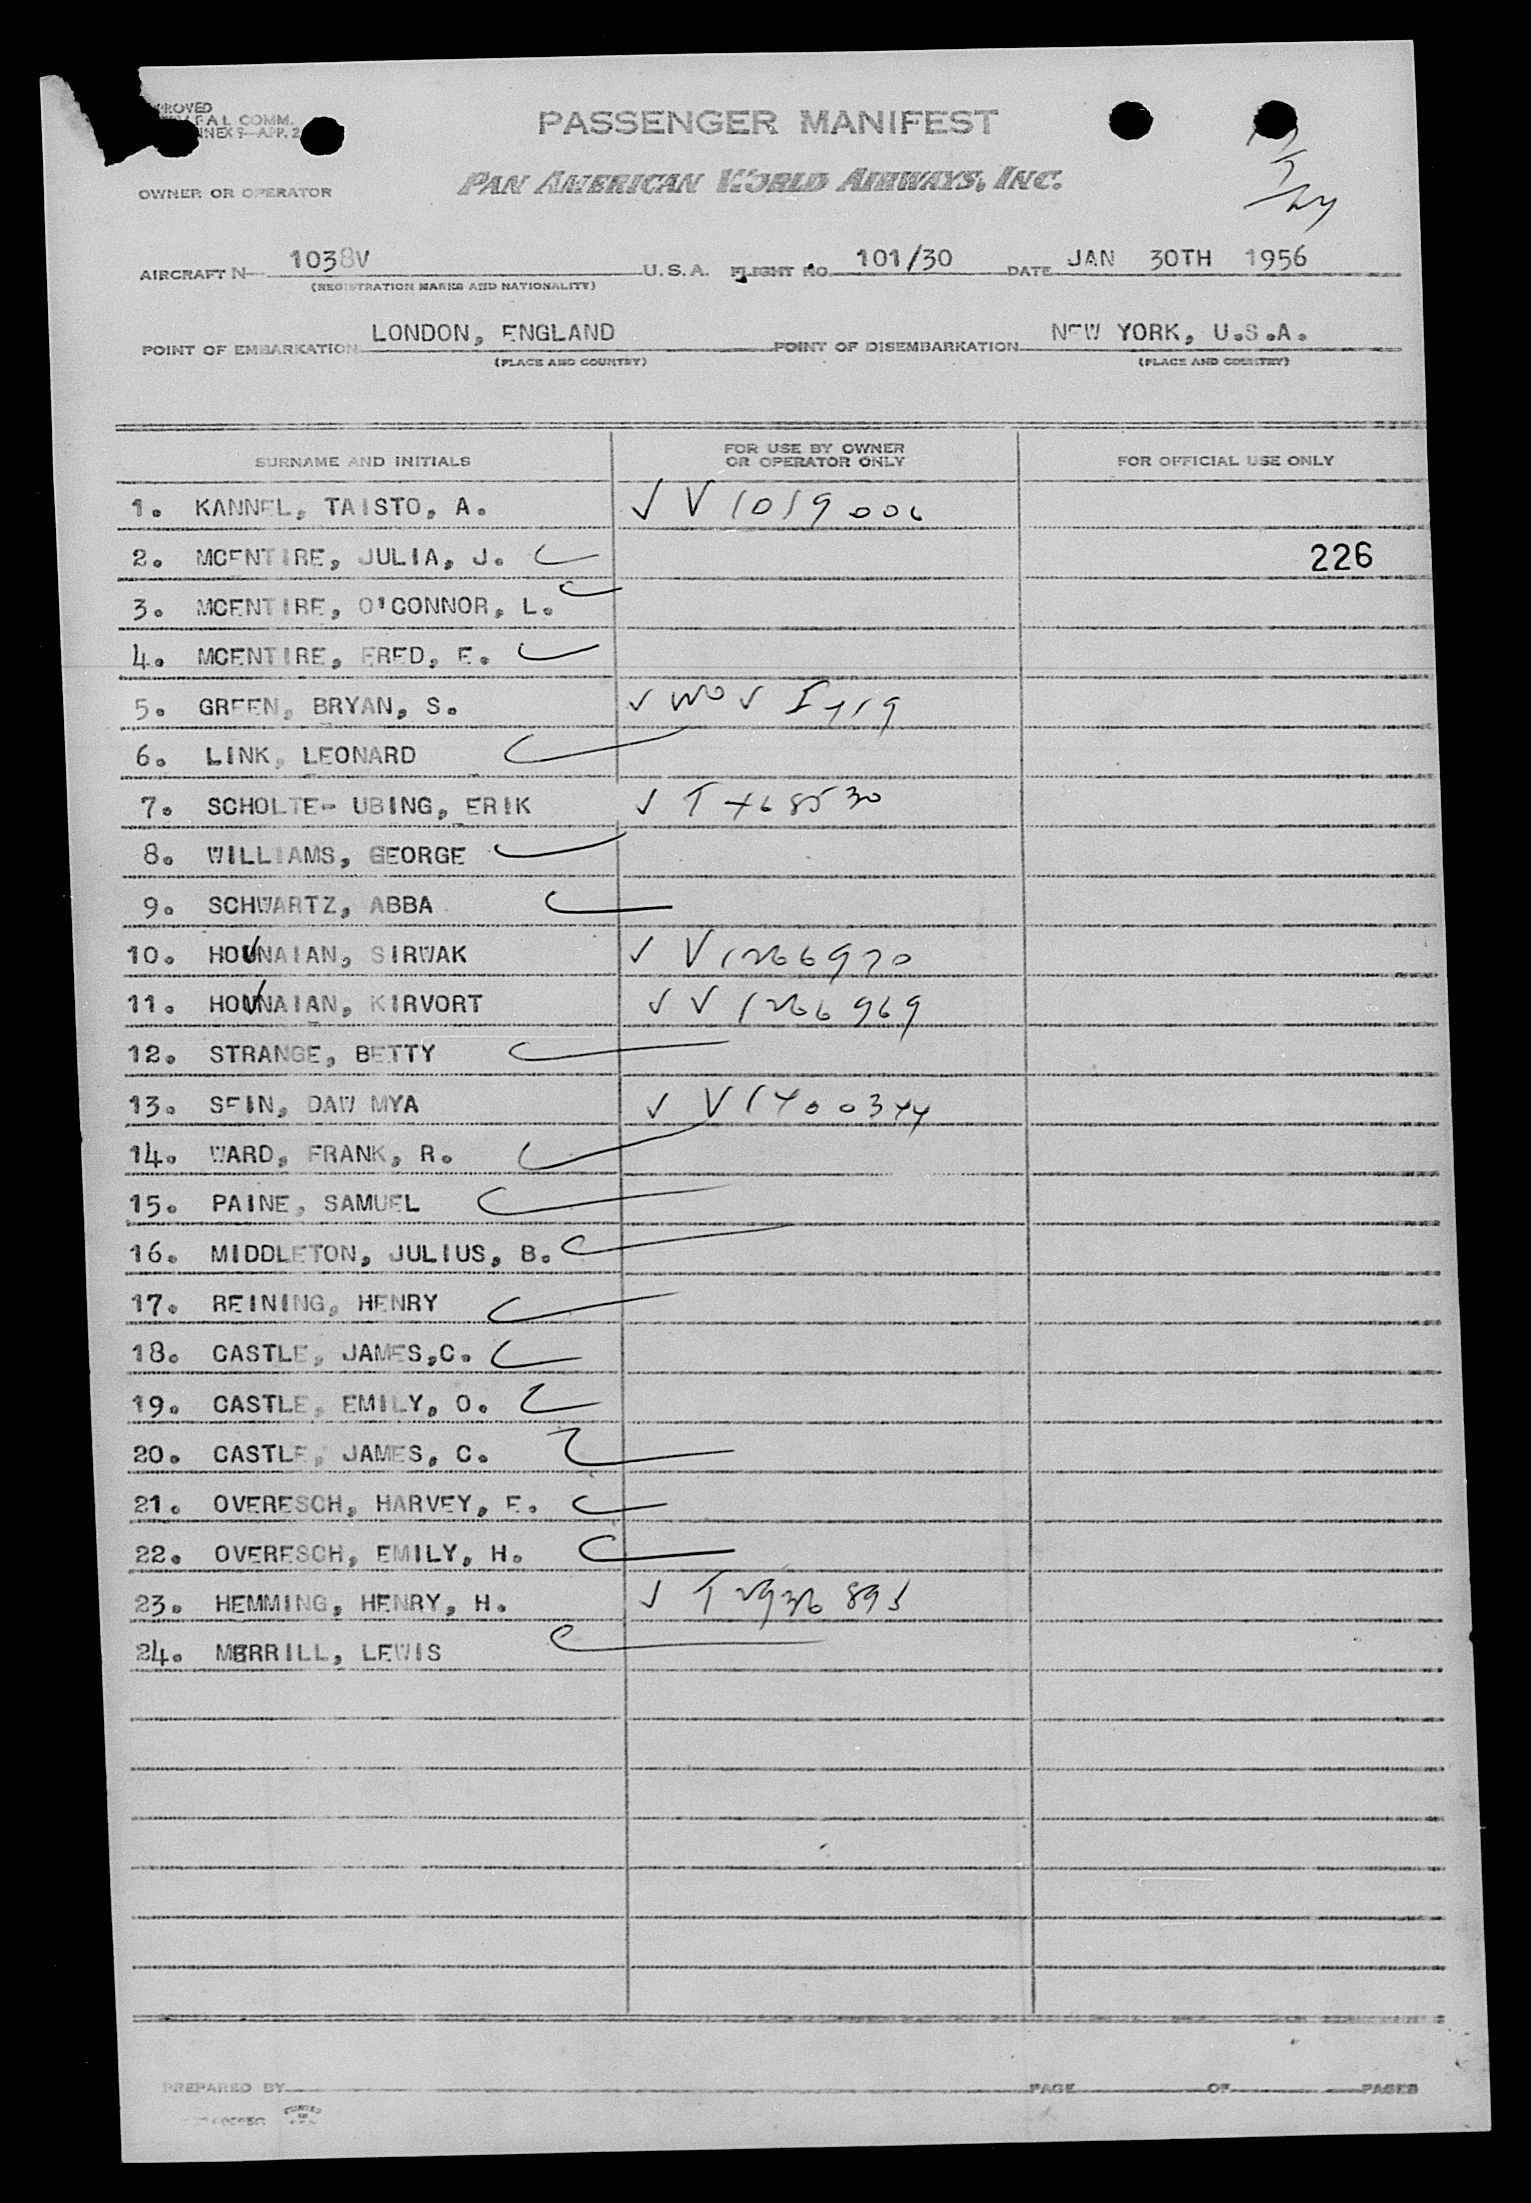 PROVED
COMM.
NNEX 9—APP. 2
PASSENGER MANIFEST
OWNER OR OPERATOR
PAN AMERICAN WORLD AIRWAYS, INC.
AIRCRAFT N 1038V U.S.A. FLIGHT NO. 101/30 DATE JAN 30TH 1956
(REGISTRATION MARKS AND NATIONALITY)
POINT OF EMBARKATION LONDON, ENGLAND POINT OF DISEMBARKATION NEW YORK, U.S.A.
(PLACE AND COUNTRY) (PLACE AND COUNTRY)
SURNAME AND INITIALS FOR USE BY OWNER OR OPERATOR ONLY FOR OFFICIAL USE ONLY
1. KANNEL, TAISTO, A. V1019006
2. MCENTIRE, JULIA, J. 226
3. MCENTIRE, O'CONNOR, L.
4. MCENTIRE, FRED, E.
5. GREEN, BRYAN, S.
6. LINK, LEONARD
7. SCHOLTE- UBING, ERIK T468530
8. WILLIAMS, GEORGE
9. SCHWARTZ, ABBA
10. HOVNAIAN, SIRWAK V1266970
11. HOVNAIAN, KIRVORT V1266969
12. STRANGE, BETTY
13. SEIN, DAW MYA V1400344
14. WARD, FRANK, R.
15. PAINE, SAMUEL
16. MIDDLETON, JULIUS, B.
17. REINING, HENRY
18. CASTLE, JAMES,C.
19. CASTLE, EMILY, O.
20. CASTLE, JAMES, C.
21. OVERESCH, HARVEY, E.
22. OVERESCH, EMILY, H.
23. HEMMING, HENRY, H.
24. MERRILL, LEWIS
PREPARED BY PAGE OF PAGES